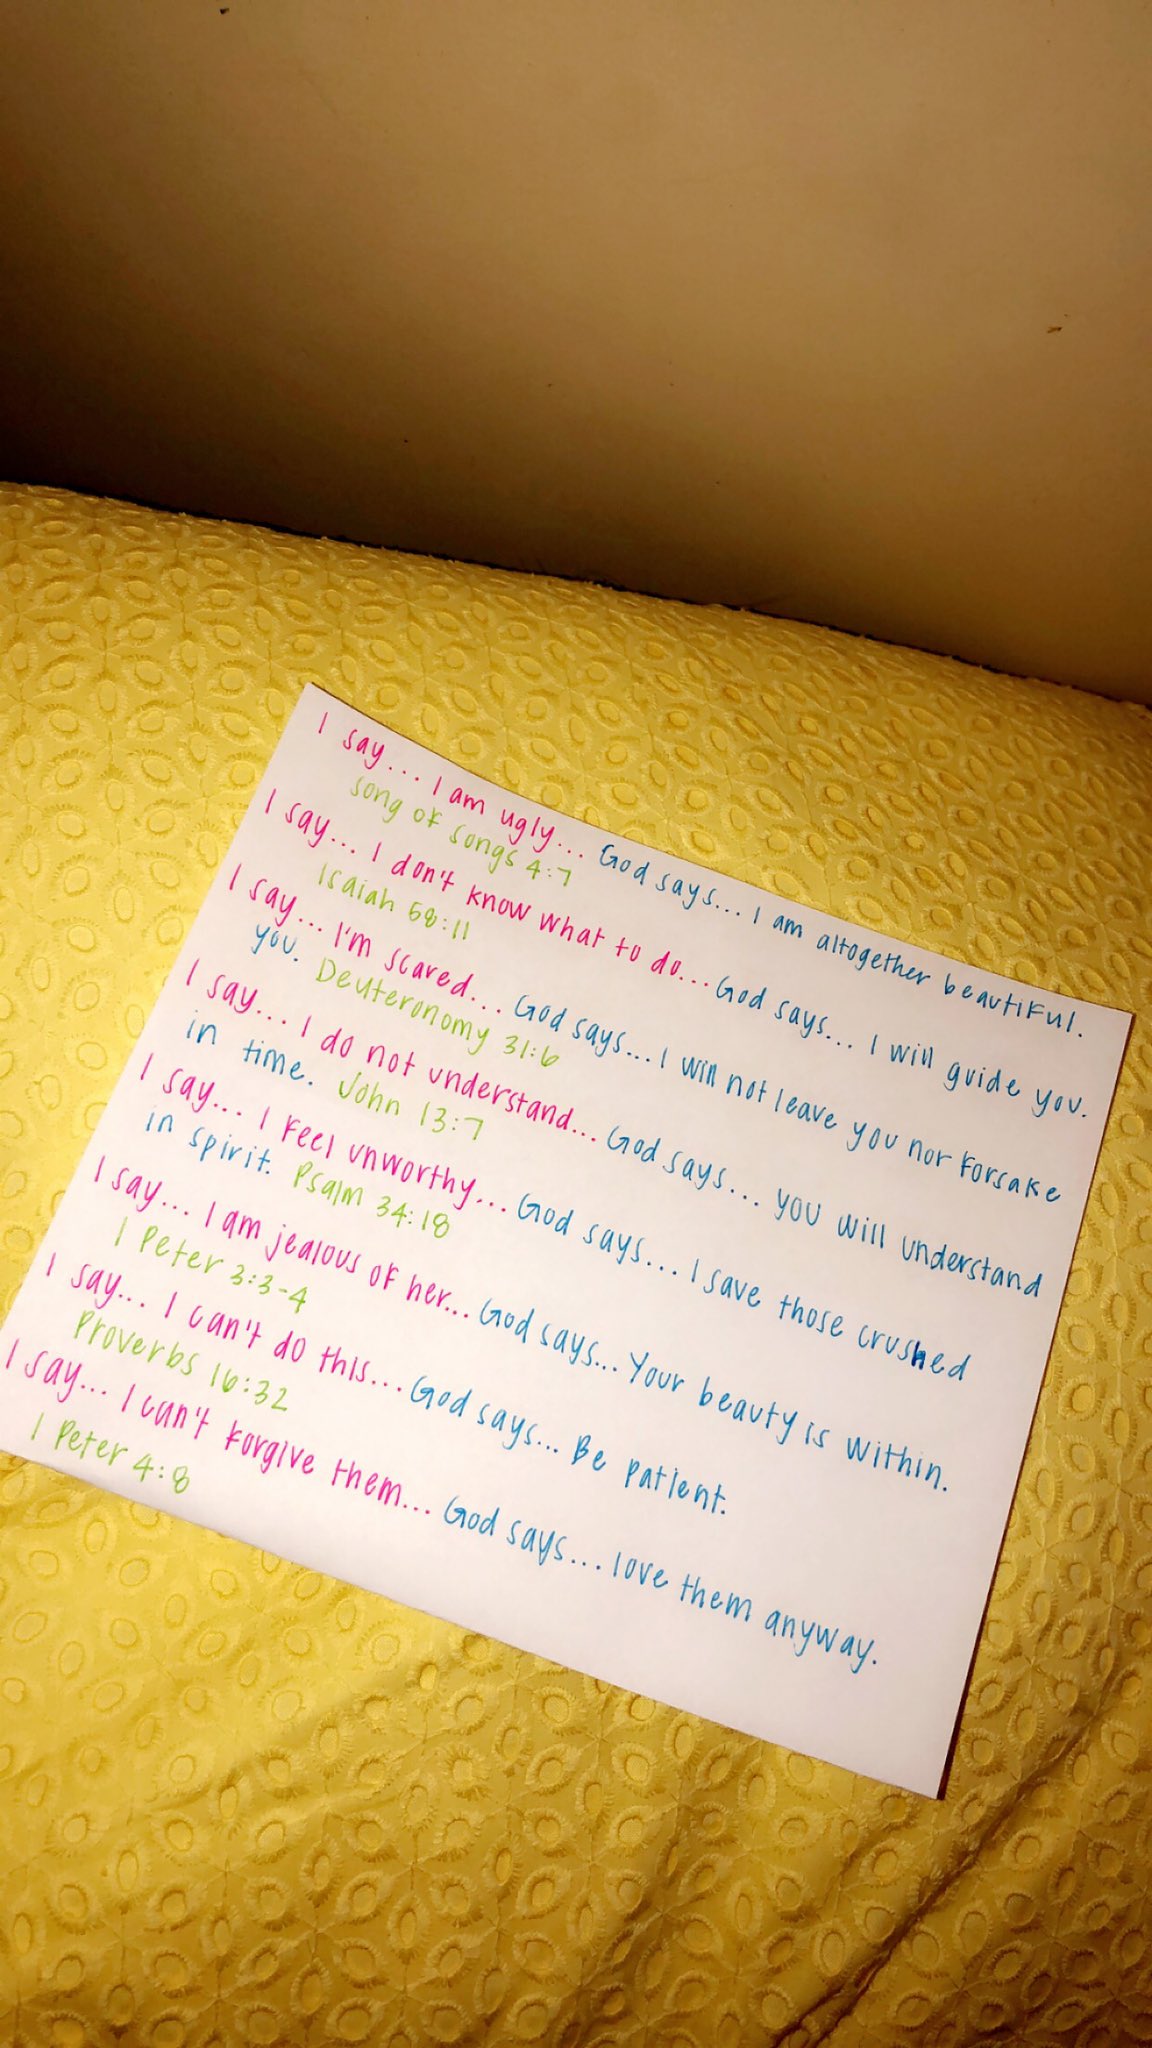 I say... I am ugly... God says... I am altogether beautiful.
song of songs 4:7
I say... I don't know what to do... God says... I will guide you.
Isaiah 58:11
I say... I'm scared... God says... I will not leave you nor forsake
you. Deuteronomy 31:6
I say... I do not understand... God says... you will understand
in time. John 13:7
I say... I feel unworthy... God says... I save those crushed
in spirit. Psalm 34:18
I say... I am jealous of her... God says... Your beauty is within.
1 Peter 3:3-4
I say... I can't do this... God says... Be patient.
Proverbs 16:32
I say... I can't forgive them... God says... love them anyway.
1 Peter 4:8